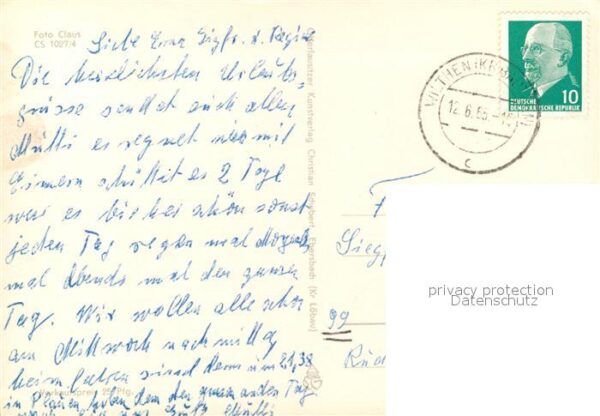 Foto Claus
CS 1027/4
Liebe Erna Siegfr. u. Regine
Die herzlichsten Urlaubs-
grüsse sendet euch allen
Mutti es regnet wie mit
Eimern schüttet es 2 Tage
war es bisher schön sonst
jeden Tag regen mal Morgens
mal Abends mal den ganzen
Tag. Wir wollen alle schon
am Mittwoch nach mittag
heim fahren sind dann um 21,38
in Plauen haben dann den ganzen andern Tag
Verkaufspreis 25 Pfg.
Oberlausitzer Kunstverlag Christian Schubert, Ebersbach (Kr Löbau)
WILTHEN (KR
12.6.65
c
DEUTSCHE
DEMOKRATISCHE REPUBLIK
10
F
Siegf
99
privacy protection
Datenschutz